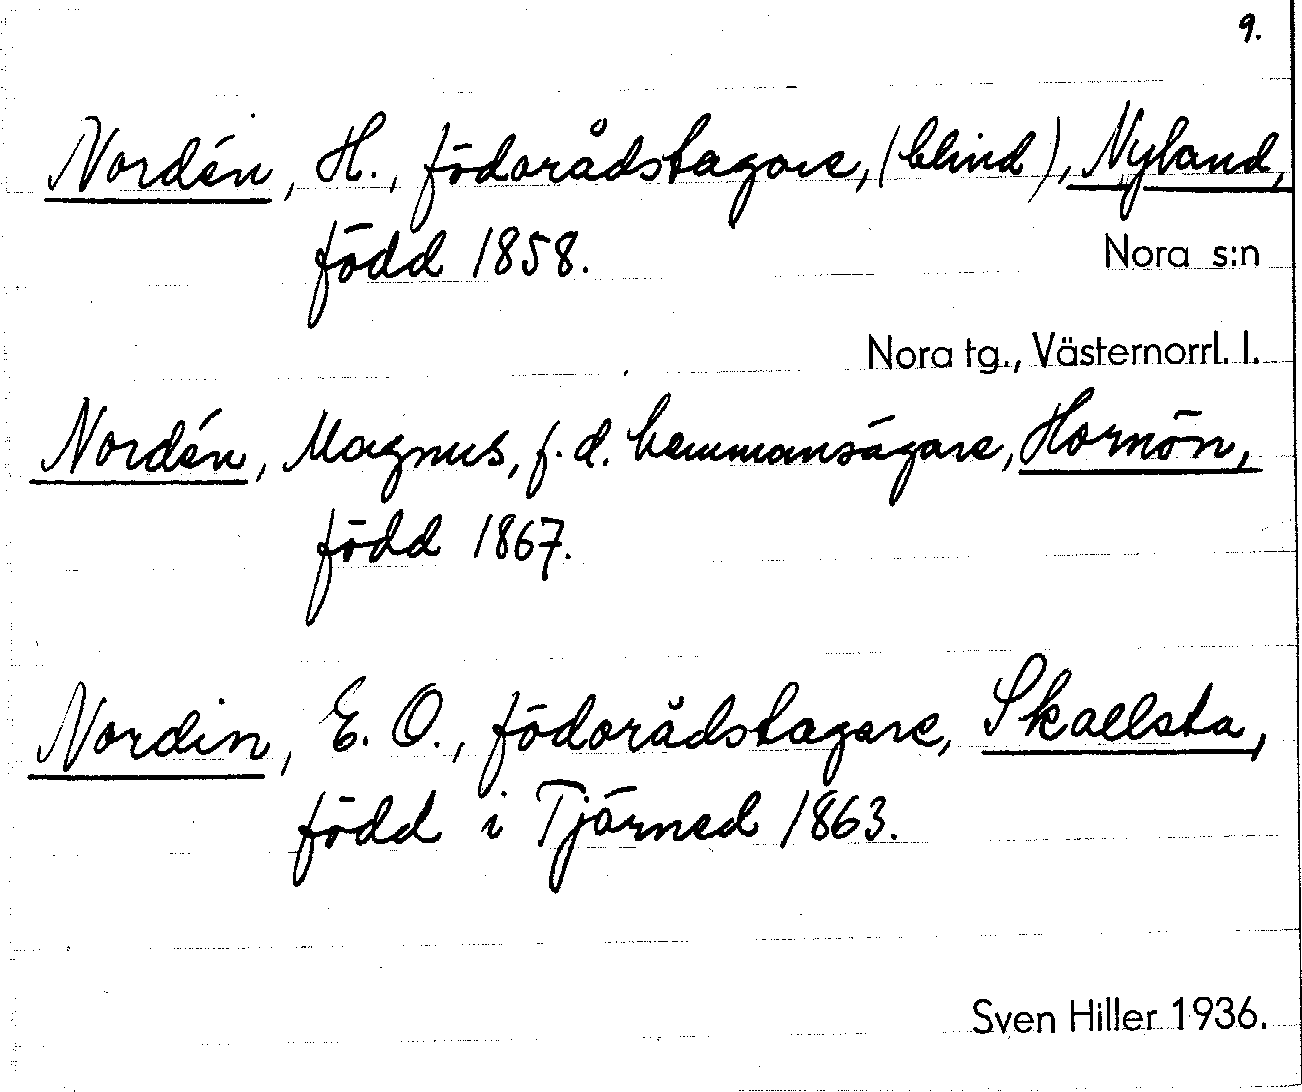 9.
Nordén, H., födorådstagare, (blind), Nyland,
född 1858.
Nora s:n
Nora tg., Västernorrl. l.
Nordén, Magnus, f.d. hemmansägare, Hornön,
född 1867.
Nordin, E. O., födorådstagare, Skallsta,
född i Tjärned 1863.
Sven Hiller 1936.